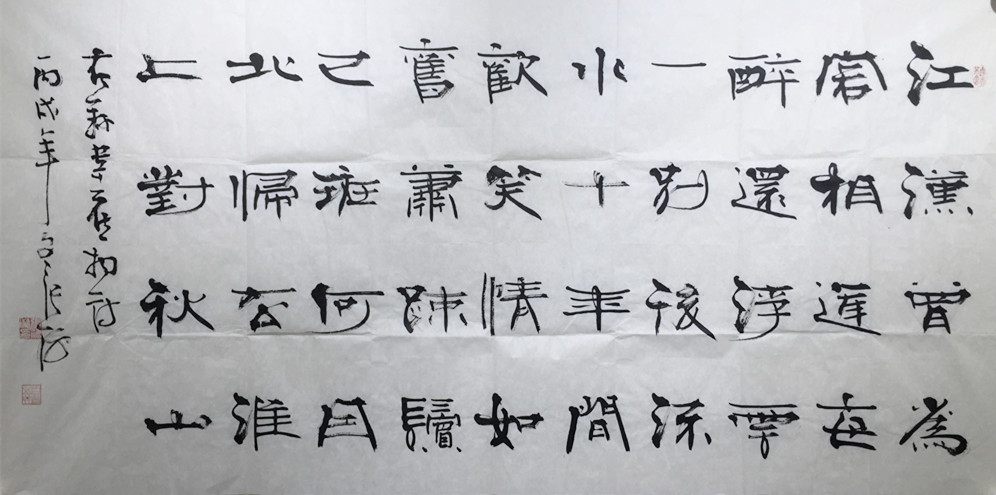 江漢曾為
客相逢每
醉還浮雲
一別後流
水十年間
歡笑情如
舊蕭踈鬢
已斑何因
北歸去淮
上對秋山
韋應物詩
丙戌年